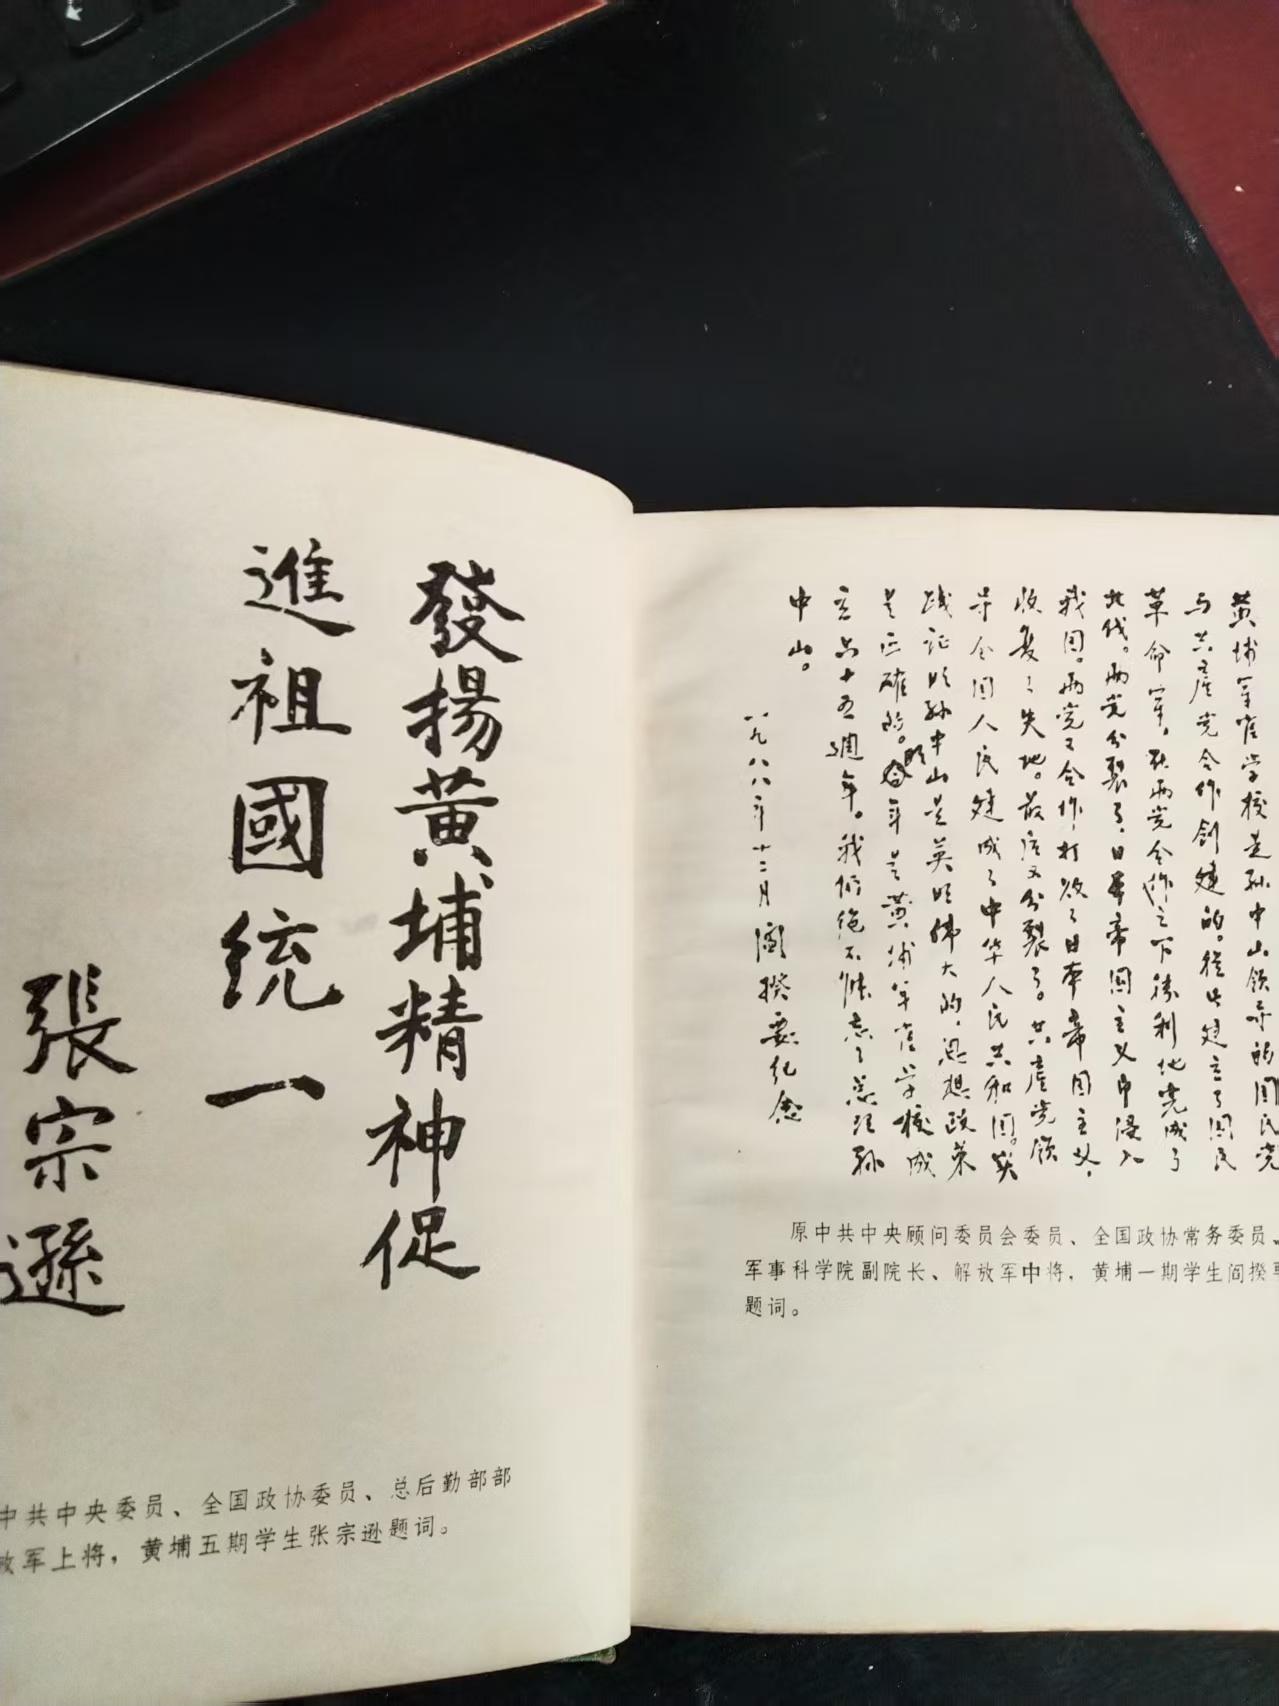 發揚黃埔精神促
進祖國統一
張宗遜
中共中央委员、全国政协委员、总后勤部部
放军上将，黄埔五期学生张宗逊题词。
黄埔军官学校是孙中山领导的国民党
与共產党合作创建的。從此建立了国民
革命军，在两党合作之下胜利地完成了
北伐。两党分裂了，日本帝国主义即侵入
我国。两党又合作，打败了日本帝国主义，
收复了失地。最后又分裂了。共產党领
导全国人民建成了中华人民共和国。实
践证明孙中山是英明伟大的，思想政策
是正确的。明年是黄埔军官学校成
立六十五週年。我们绝不能忘了总理孙
中山。
一九八八年十二月 阎揆要纪念
原中共中央顾问委员会委员、全国政协常务委员、
军事科学院副院长、解放军中将，黄埔一期学生阎揆要
题词。